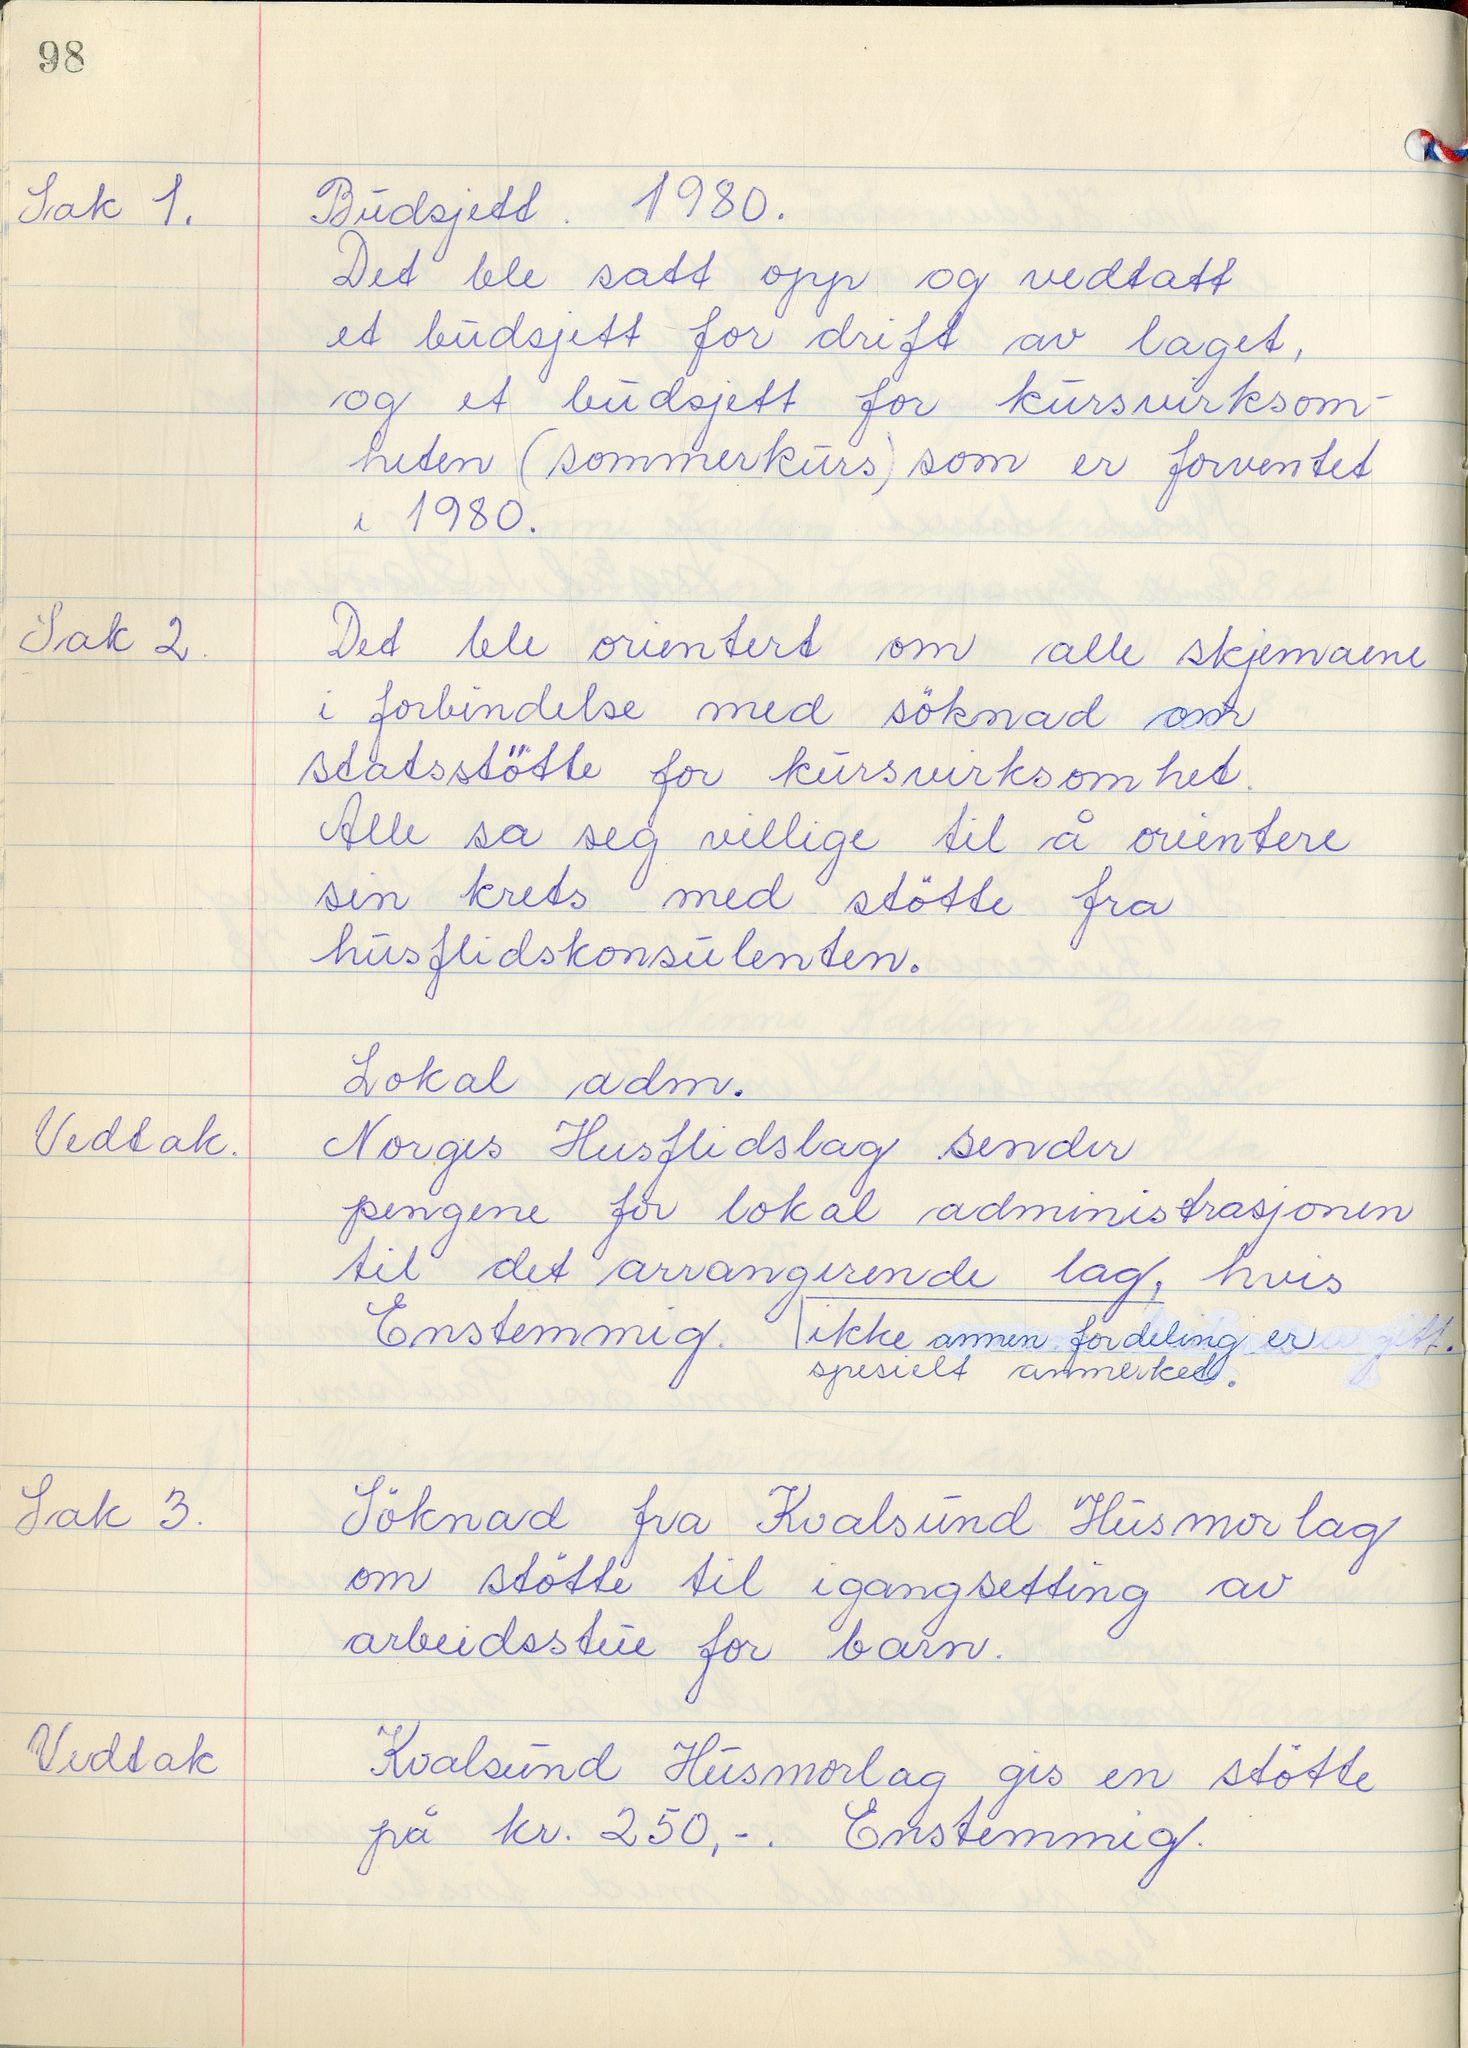 98
Sak 1. Budsjett. 1980.
Det ble satt opp og vedtatt
et budsjett for drift av laget,
og et budsjett for kursvirksom-
heten (sommerkurs) som er forventet
i 1980.
Sak 2. Det ble orientert om alle skjemaene
i forbindelse med söknad om
statsstötte for kursvirksomhet.
Alle sa seg villige til å orientere
sin krets med stötte fra
husflidskonsulenten.
Lokal adm.
Vedtak. Norges Husflidslag sender
pengene for lokal administrasjonen
til det arrangerende lag, hvis
Enstemmig. ikke annen fordeling er
spesielt anmerket.
Sak 3. Söknad fra Kvalsund Husmorlag
om stötte til igangsetting av
arbeidsstue for barn.
Vedtak Kvalsund Husmorlag gis en stötte
på kr. 250,-. Enstemmig.